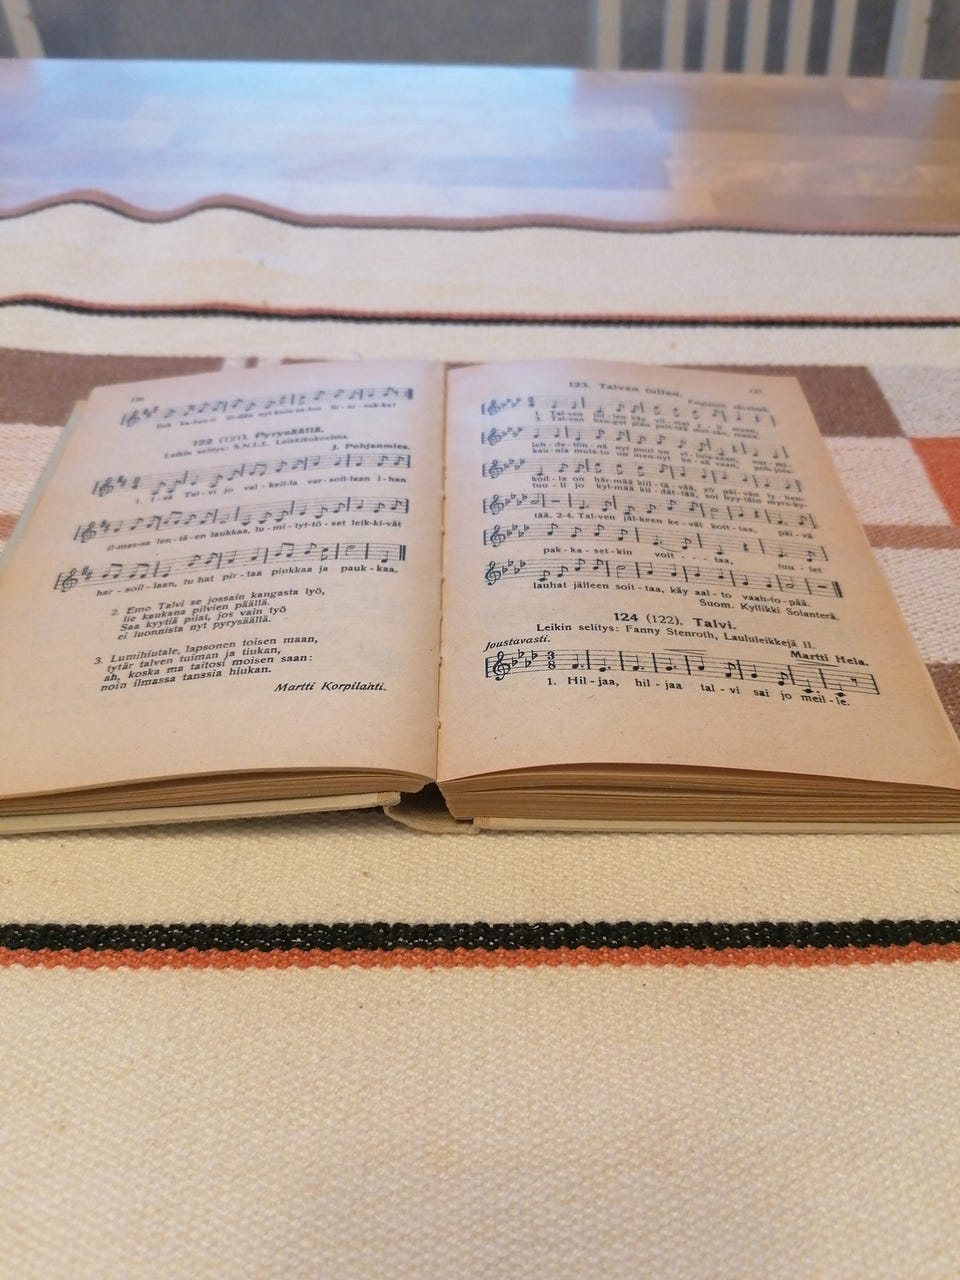 126
122 (121). Pyrysäällä.
Leikin selitys: S.N.L.L. Leikkikokoelma.
J. Pohjanmies.
1. I-sä Tal-vi jo val-keil-la var-soil-laan i-han
il-mas-sa len-tä-en laukkaa, lu-mi-tyt-tö-set leik-ki-vät
har-soil-laan, tu hat pir-taa piukkaa ja pauk-kaa,
2. Emo Talvi se jossain kangasta lyö,
lie kaukana pilvien päällä.
Saa kyytiä piiat, jos vain työ
ei luonnista nyt pyrysäällä.
3. Lumihiutale, lapsonen toisen maan,
tytär talven tuiman ja tiukan,
ah, koska ma taitosi moisen saan:
noin ilmassa tanssia hiukan.
Martti Korpilahti.
123. Talven tulten.
127
Englanti sävelmä.
1. Tal-ven tul-ten
2. Tal-ven han-get
leh-de-tön-nä nyt puut on vi-luis-saan, nur-mi-
kau-nis muis-to on men-nyt ke-sä vaan, poh-jois-
koil-la on här-mää kiil-tä-vää, yö päi-vän ly-hen-
tuu-li jo kyl-mää kii-dät-tää, soi hyy-täin myrs-ky-
tää. 2-4. Tal-ven jäl-keen ke-vät koit-taa, päi-vä
pak-ka-set-kin voit - - taa, tuu-let
lauhat jälleen soit-taa, käy aal-to vaah-to-pää.
Suom. Kyllikki Solanterä.
124 (122). Talvi.
Leikin selitys: Fanny Stenroth, Laululeikkejä II.
Joustavasti.
Martti Hela.
1. Hil-jaa, hil-jaa tal-vi sai jo meil-le.